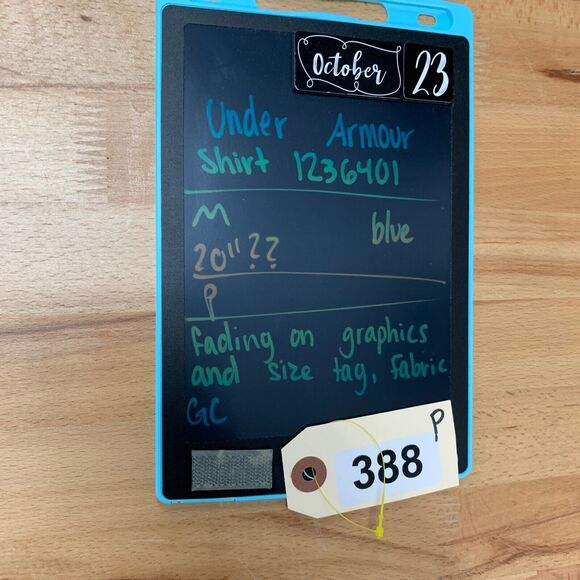 October 23
Under Armour
Shirt 1236401
M blue
20" ??
P
Fading on graphics
and size tag, Fabric
GC
P
388